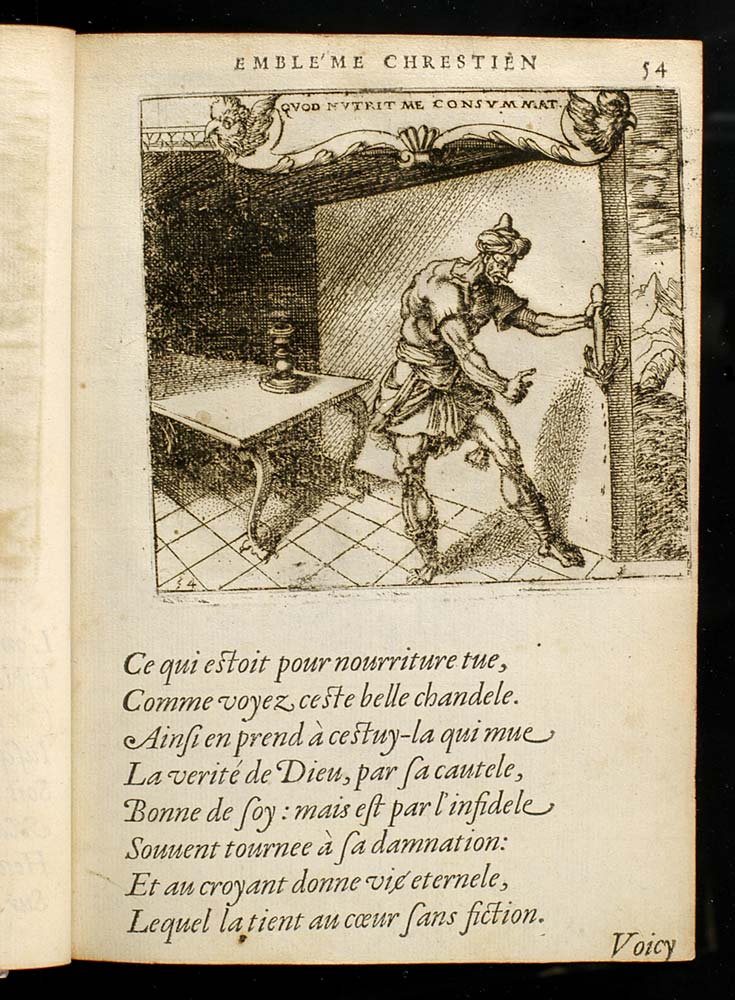 EMBLE'ME CHRESTIEN
54
QVOD NVTRIT ME CONSVMMAT.
54
Ce qui estoit pour nourriture tue,
Comme voyez ceste belle chandele.
Ainſi en prend à cestuy-la qui mue
La verité de Dieu, par ſa cautele,
Bonne de ſoy : mais eſt par l'infidele
Souuent tournee à ſa damnation:
Et au croyant donne vie eternele,
Lequel la tient au cœur ſans fiction.
Voicy